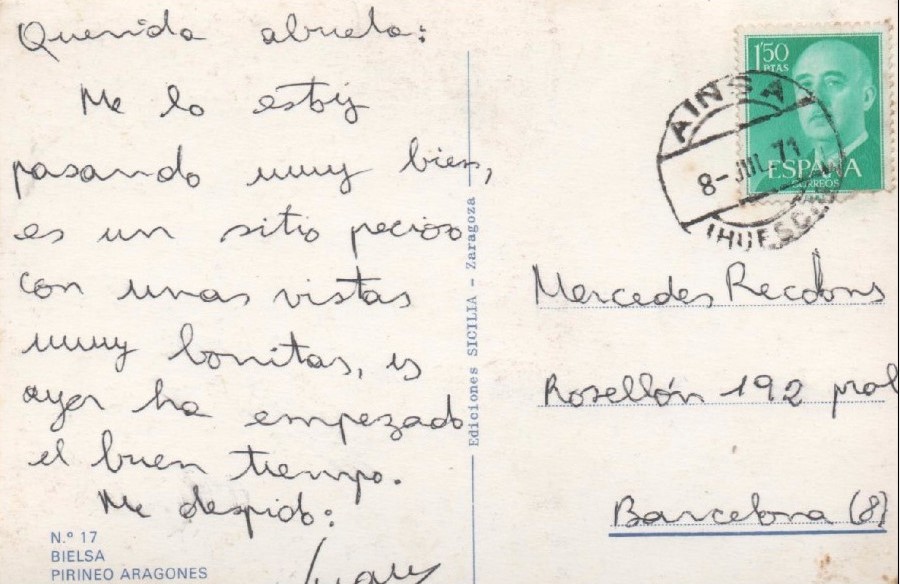 Querida abuela:
Me lo estoy
pasando muy bien,
es un sitio pecioso
con unas vistas
muy bonitas, es
ayer ha empezado
el buen tiempo.
Me despido:
N.º 17
BIELSA
PIRINEO ARAGONES
Ediciones SICILIA - Zaragoza
1'50
PTAS
ESPAÑA
CORREOS
AINSA
8-JUL.71
(HUESCA)
Mercedes Recolons
Rosellón 192 pral
Barcelona (8)